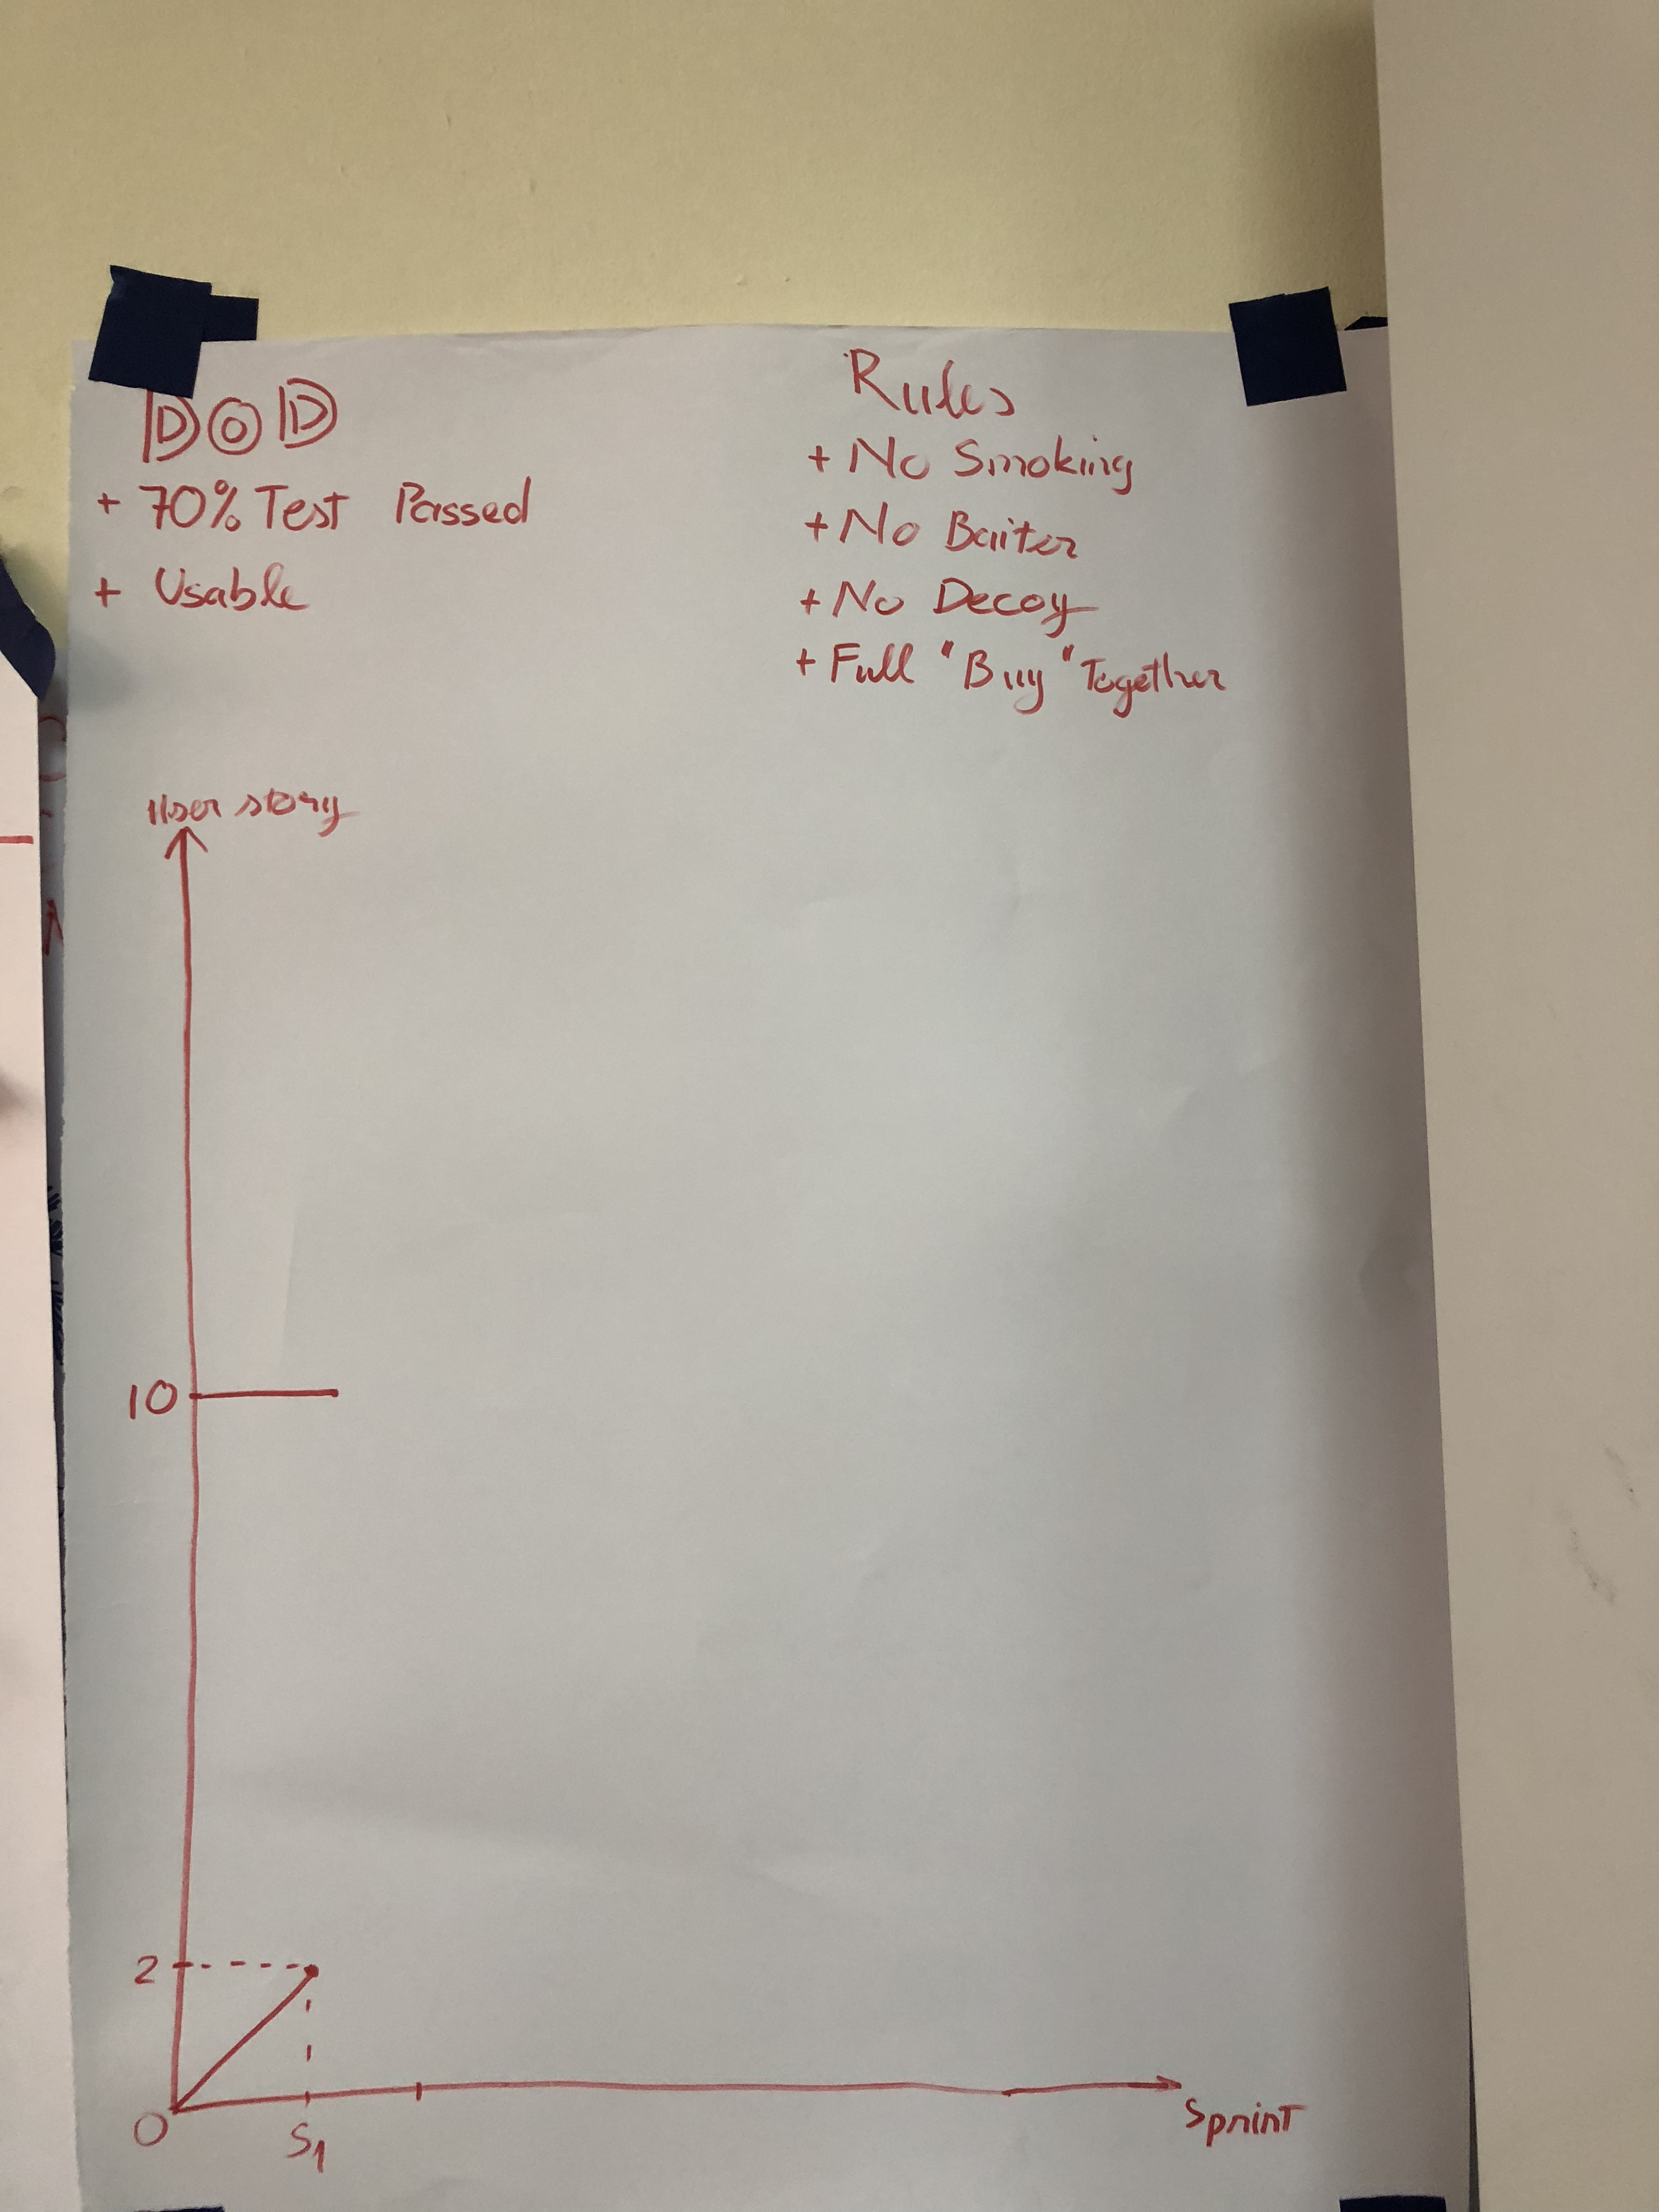 DOD
+ 70% Test Passed
+ Usable
Rules
+ No Smoking
+ No Baiter
+ No Decoy
+ Full "Buy" Together
User story
10
2
0
S1
Sprint